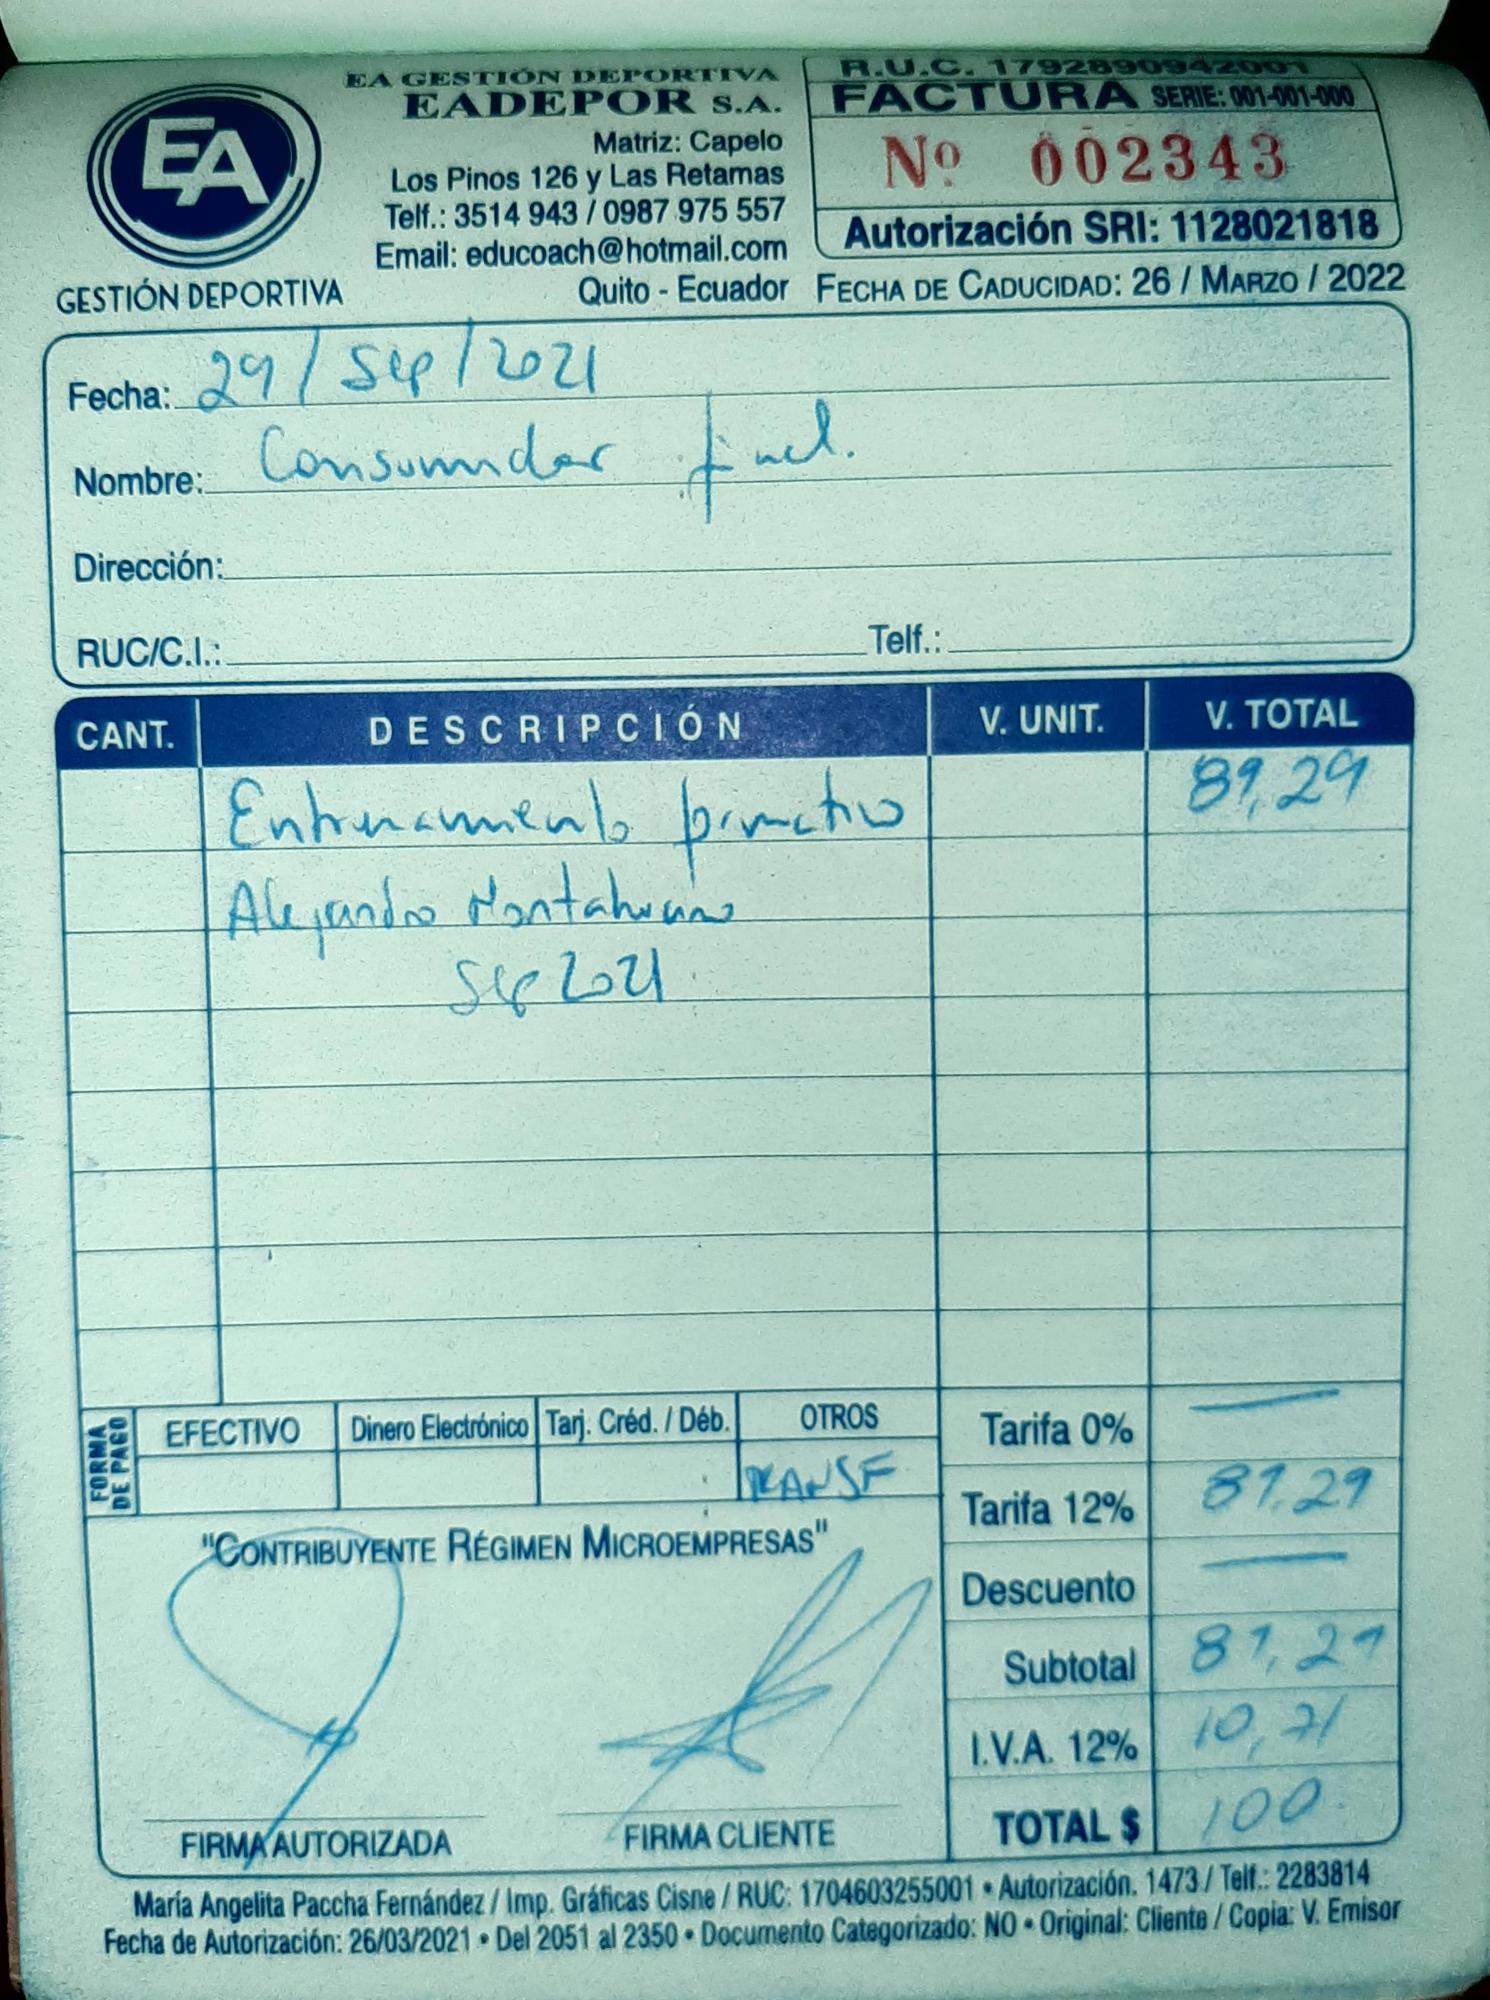 EA
GESTIÓN DEPORTIVA
EA GESTIÓN DEPORTIVA
EADEPOR S.A.
Matriz: Capelo
Los Pinos 126 y Las Retamas
Telf.: 3514 943 / 0987 975 557
Email: educoach@hotmail.com
Quito - Ecuador
R.U.C. 1792890942001
FACTURA SERIE: 001-001-000
Nº 002343
Autorización SRI: 1128021818
FECHA DE CADUCIDAD: 26 / MARZO / 2022
Fecha: 29/Sep/2021
Nombre: Consumidor final.
Dirección:
RUC/C.I.: Telf.:
CANT. DESCRIPCIÓN V. UNIT. V. TOTAL
Entrenamiento 89,29
Alejandro
Sep 2021
FORMA DE PAGO EFECTIVO Dinero Electrónico Tarj. Créd. / Déb. OTROS
TRANSF
Tarifa 0% —
Tarifa 12% 89,29
Descuento —
Subtotal 89,29
I.V.A. 12% 10,71
TOTAL $ 100
"CONTRIBUYENTE RÉGIMEN MICROEMPRESAS"
FIRMA AUTORIZADA FIRMA CLIENTE
María Angelita Paccha Fernández / Imp. Gráficas Cisne / RUC: 1704603255001 • Autorización. 1473 / Telf.: 2283814
Fecha de Autorización: 26/03/2021 • Del 2051 al 2350 • Documento Categorizado: NO • Original: Cliente / Copia: V. Emisor